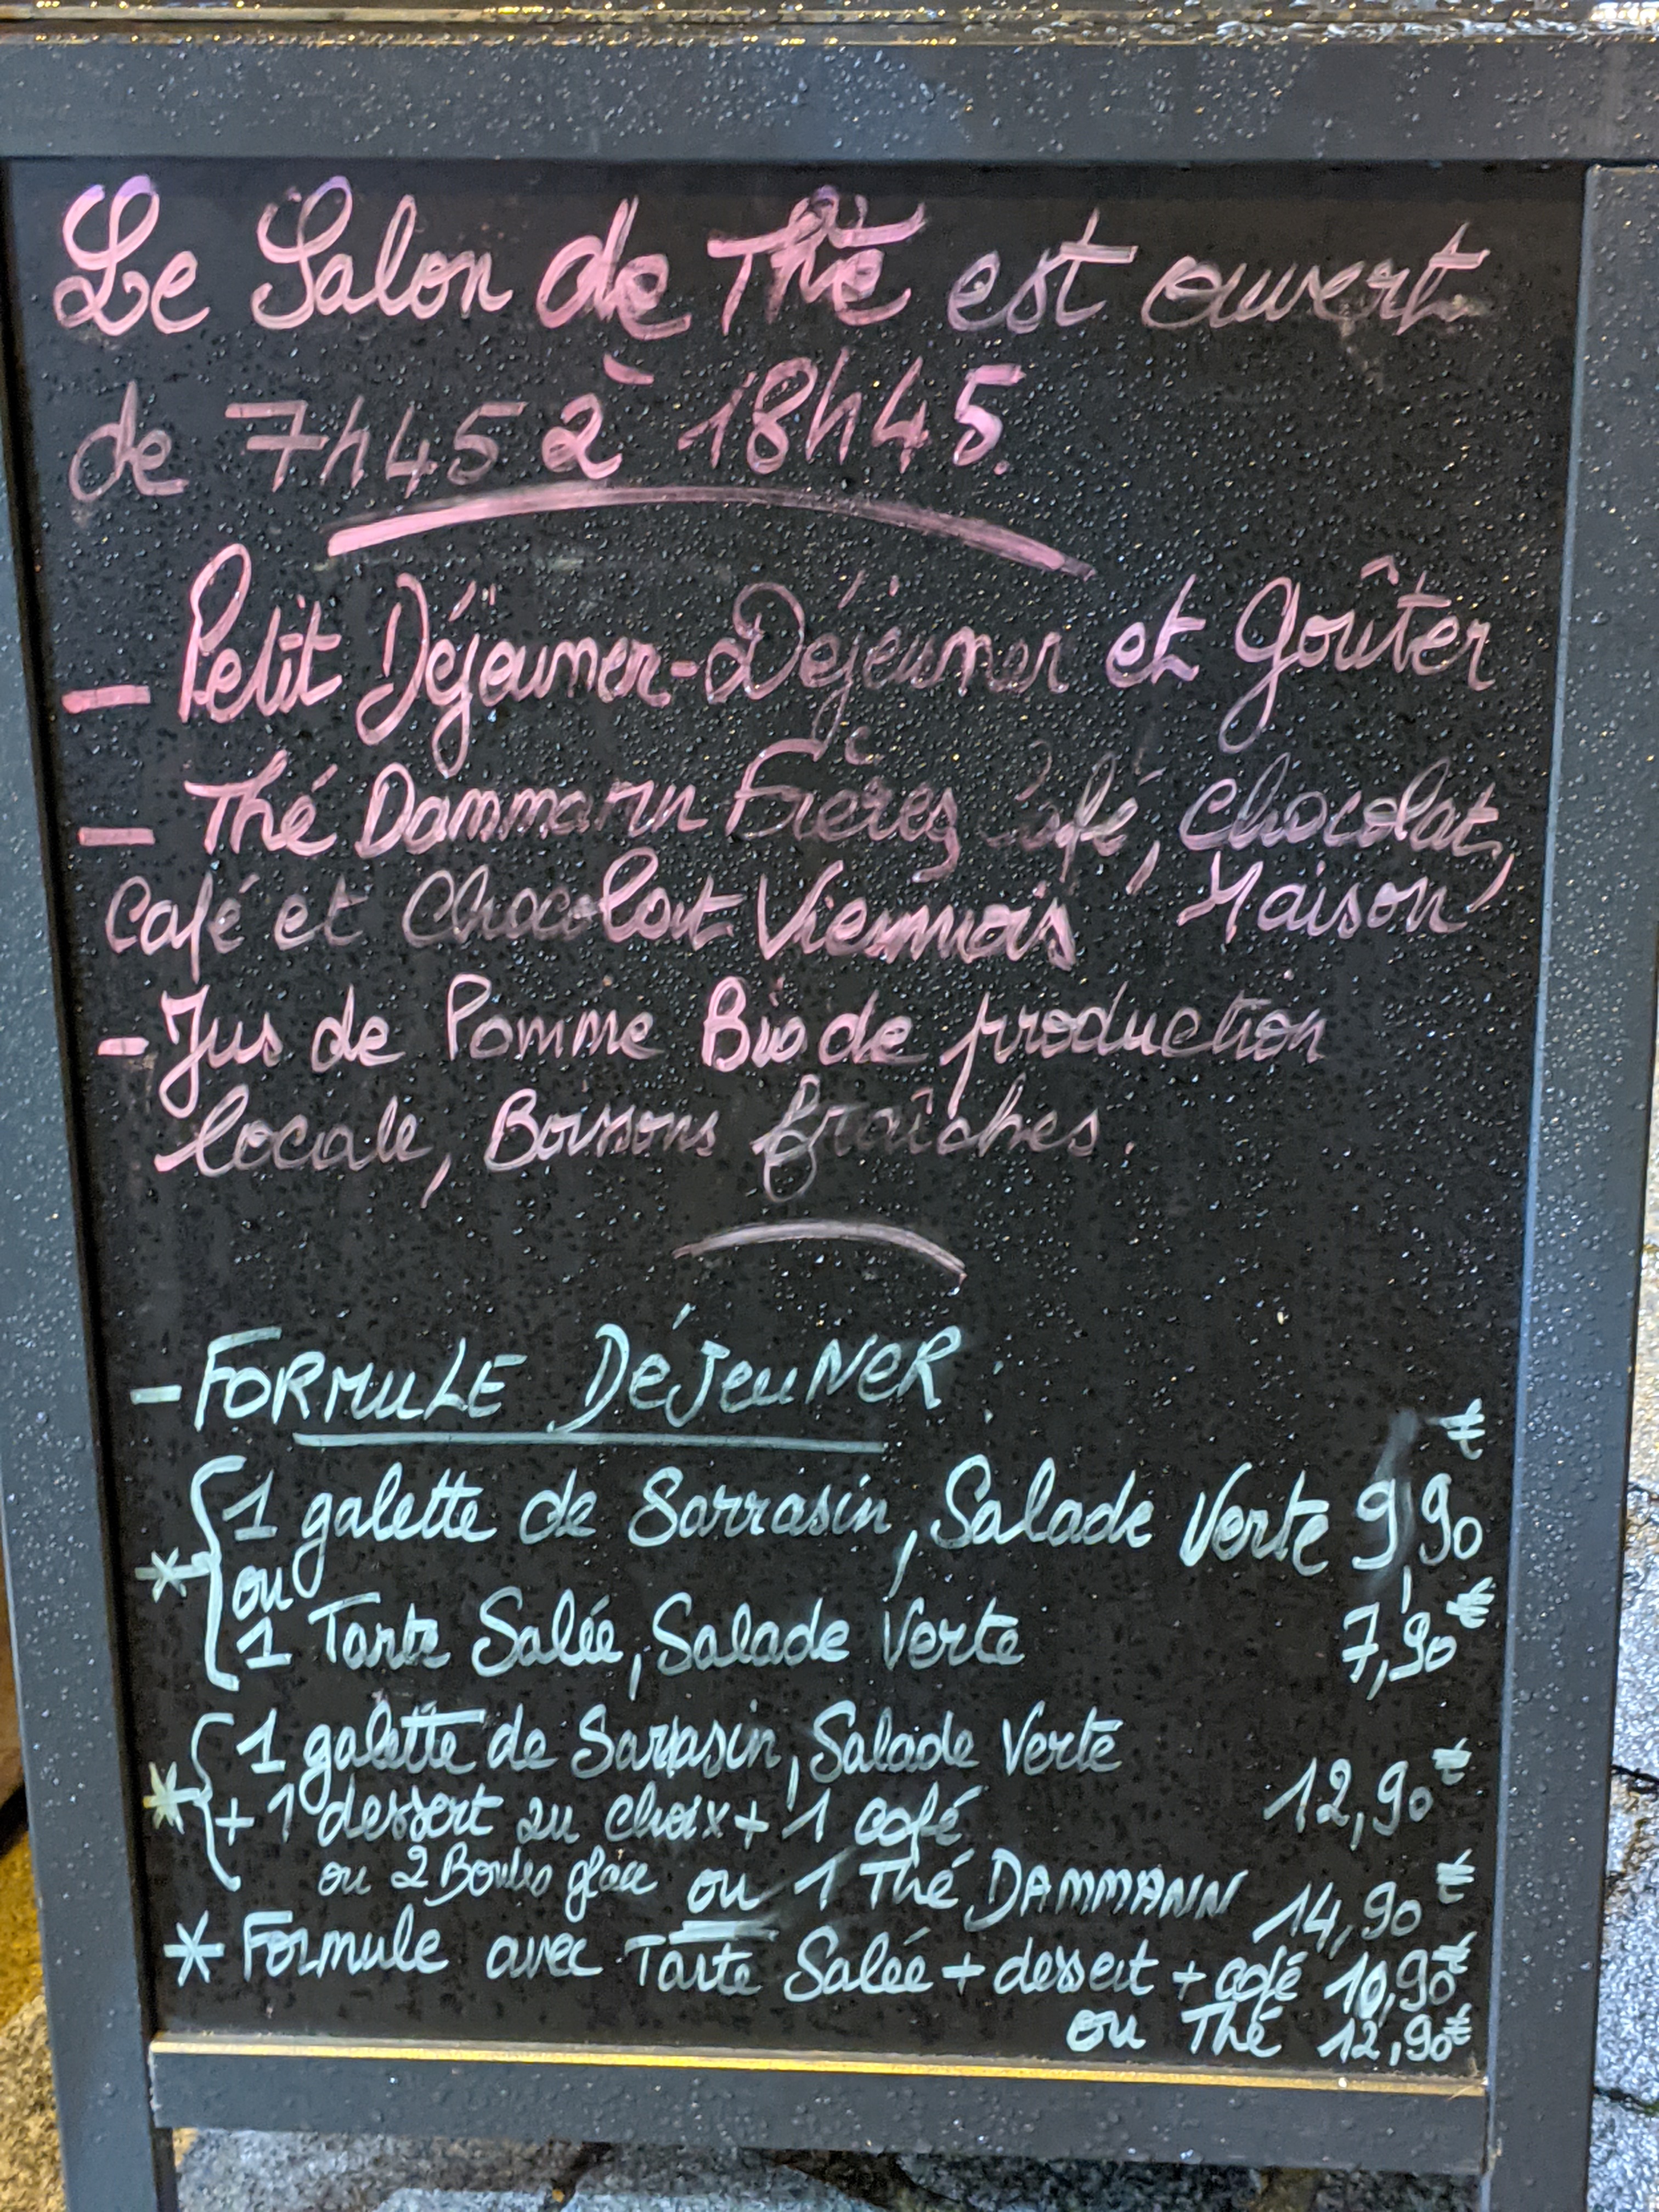 Le Salon de Thé est ouvert
de 7h45 à 18h45.
- Petit Déjeuner - Déjeuner et Goûter
- Thé Dammann Frères Café, Chocolat,
Café et Chocolat Viennois Maison,
- Jus de Pomme Bio de production
locale, Boissons fraîches.
- FORMULE DéJeuNeR :
1 galette de Sarrasin, Salade Verte 9,90 €
* ou
1 Tarte Salée, Salade Verte 7,90 €
1 galette de Sarrasin, Salade Verte
* + 1 dessert au choix + 1 café 12,90 €
ou 2 Boules glace ou 1 Thé DAMMANN 14,90 €
* Formule avec Tarte Salée + dessert + café 10,90 €
ou Thé 12,90 €